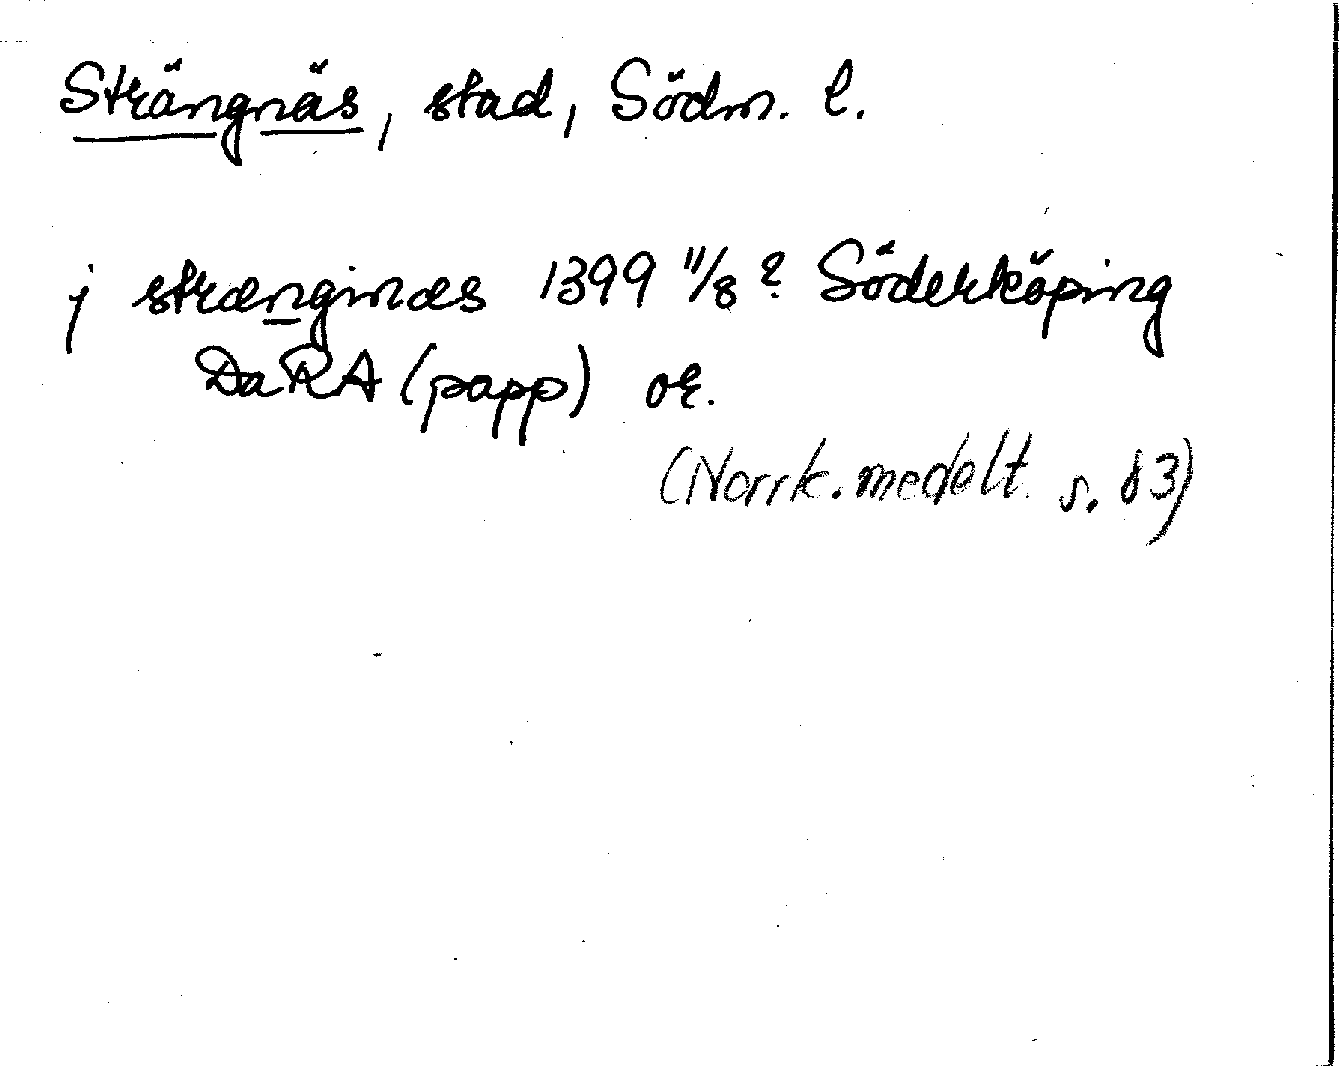 Strängnäs, stad, Södm. l.
j strænginæs 1399 11/8? Söderköping
DaRA (papp) or.
(Norrk. medelt. s. 83)